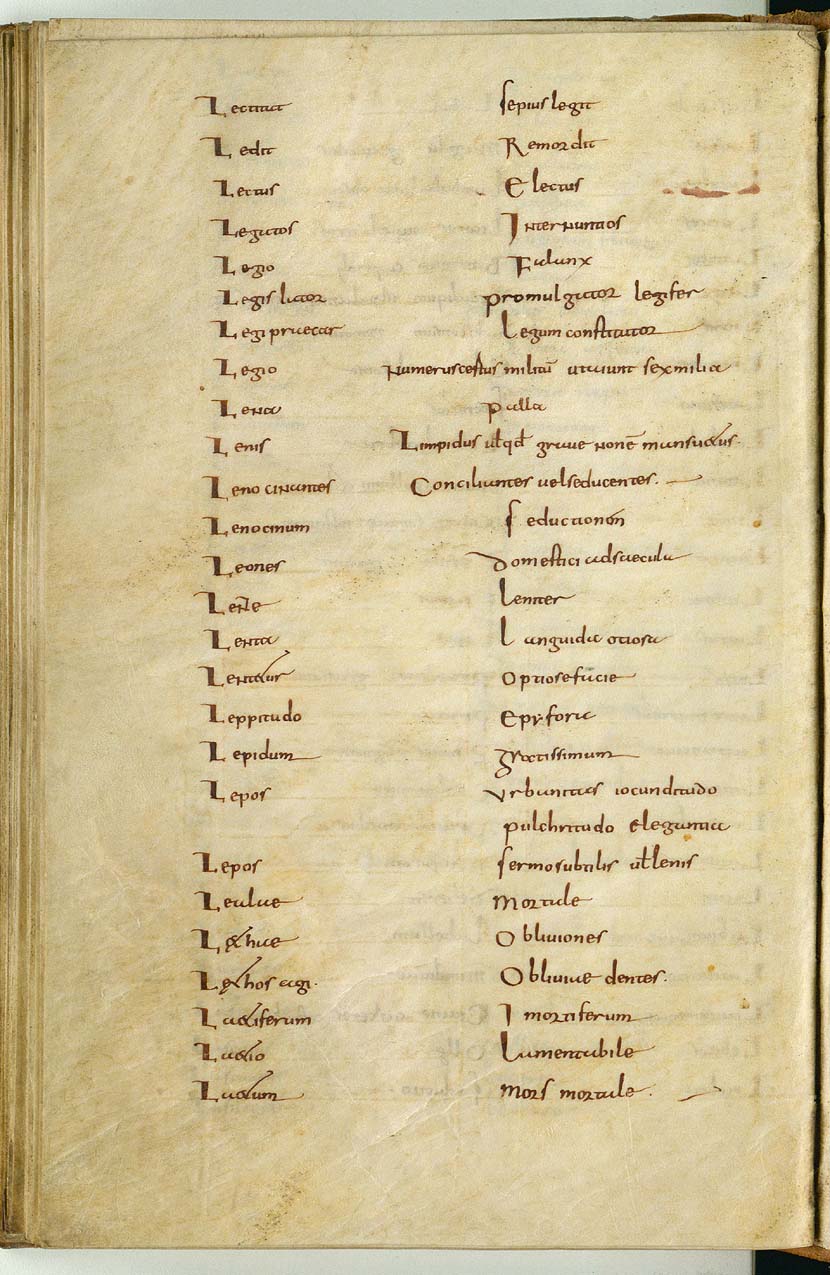 Lectitat sepius legit
Ledit Remordit
Lectus Electus
Legatos Internuntios
Legio Falanx
Legis lator promulgator legifer
Legum constitutor
Legio numerus certus militū ut aiunt sex milia
Lena palla
Lenis Limpidus ul qd graue non ē mansuetus.
Lenocinantes Conciliantes uel seducentes.
Lenocinium Seductionem
Leones domestici ad saecula
Lenter
Lenta Languida otiosa
Lentaur Optiose facie
Leppitudo Epyforie
Lepidum gratissimum
Lepos urbanitas iocunditudo
pulchritudo elegantia
Lepos sermo subtilis ul lenis
Letale mortale
Lethae Obliuiones
Lethos agi. Obliuiae dentes.
Laetiferum Imortiferum
Lamentabile
Laetum mors mortale.